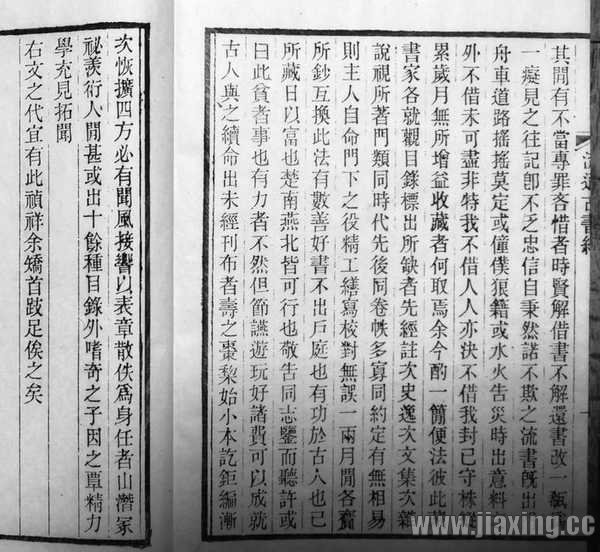 其閒有不當專罪吝惜者時賢解借書不解還書改一瓻
一癡見之往記卽不乏忠信自秉然諾不欺之流書旣出
舟車道路搖搖莫定或僮僕狼籍或水火告災時出意料
外不借未可盡非特我不借人人亦決不借我封己守株縱
累歲月無所增益收藏者何取焉余今酌一簡便法彼此藏
書家各就觀目錄標出所缺者先經註次史逸次文集次雜
說視所著門類同時代先後同卷帙多寡同約定有無相易
則主人自命門下之役精工繕寫校對無誤一兩月閒各齎
所鈔互換此法有數善好書不出戶庭也有功於古人也己
所藏日以富也楚南燕北皆可行也敬告同志鑒而聽許或
曰此貧者事也有力者不然但節讌遊玩好諸費可以成就
古人與之續命出未經刊布者壽之棗棃始小本訖鉅編漸
次恢擴四方必有聞風接響以表章散佚爲身任者山潛冢
祕羨衍人閒甚或出十餘種目錄外嗜奇之子因之覃精力
學充見拓聞
右文之代宜有此禎祥余矯首跂足俟之矣
www.jiaxing.cc